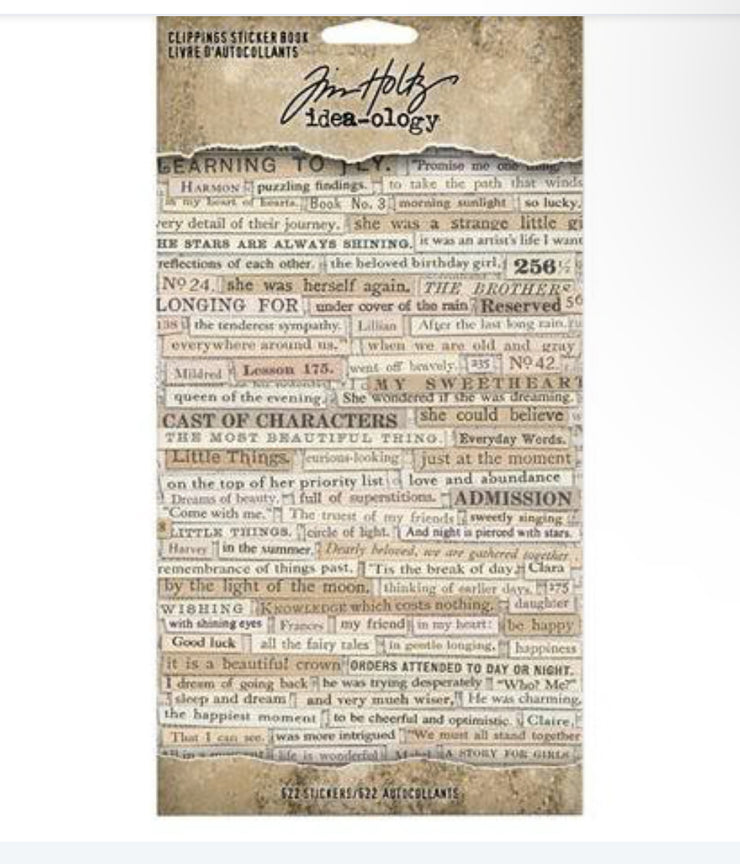 CLIPPINGS STICKER BOOK
LIVRE D'AUTOCOLLANTS
Tim Holtz
idea-ology
LEARNING TO FLY. "Promise me one thing,
HARMON puzzling findings. to take the path that winds
in my heart of hearts. Book No. 3 morning sunlight so lucky.
very detail of their journey. she was a strange little gi
HE STARS ARE ALWAYS SHINING. it was an artist's life I want
reflections of each other. the beloved birthday girl. 256½
No 24. she was herself again. THE BROTHERS
LONGING FOR under cover of the rain Reserved 56
138 the tenderest sympathy. Lillian After the last long rain.
everywhere around us." when we are old and gray
Mildred Lesson 175. went off bravely. 235 No 42.
MY SWEETHEART
queen of the evening. She wondered if she was dreaming.
CAST OF CHARACTERS she could believe
THE MOST BEAUTIFUL THING. Everyday Words.
Little Things. curious-looking just at the moment
on the top of her priority list love and abundance
Dreams of beauty, full of superstitions. ADMISSION
"Come with me." The truest of my friends sweetly singing
8 LITTLE THINGS. circle of light. And night is pierced with stars.
Harvey in the summer, Dearly beloved, we are gathered together
remembrance of things past. "Tis the break of day. Clara
by the light of the moon. thinking of earlier days. 175
WISHING KNOWLEDGE which costs nothing. daughter
with shining eyes Frances my friend in my heart: be happy
Good luck all the fairy tales in gentle longing, happiness
it is a beautiful crown ORDERS ATTENDED TO DAY OR NIGHT.
I dream of going back he was trying desperately "Who? Me?"
sleep and dream and very much wiser, He was charming,
the happiest moment to be cheerful and optimistic. Claire,
That I can see. was more intrigued "We must all stand together
All in a moment life is wonderful Mabel A STORY FOR GIRLS
622 STICKERS/622 AUTOCOLLANTS